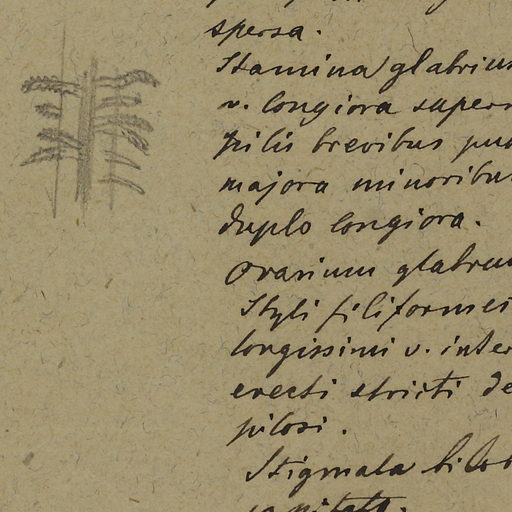 spersa.
Stamina glabrius
v. longiora supern
pilis brevibus pu
majora minoribus
duplo longiora.
Ovarium glabrum
Styli filiformes
longissimi v. inter
erecti stricti de
pilosi.
Stigmata bilob
capitata.